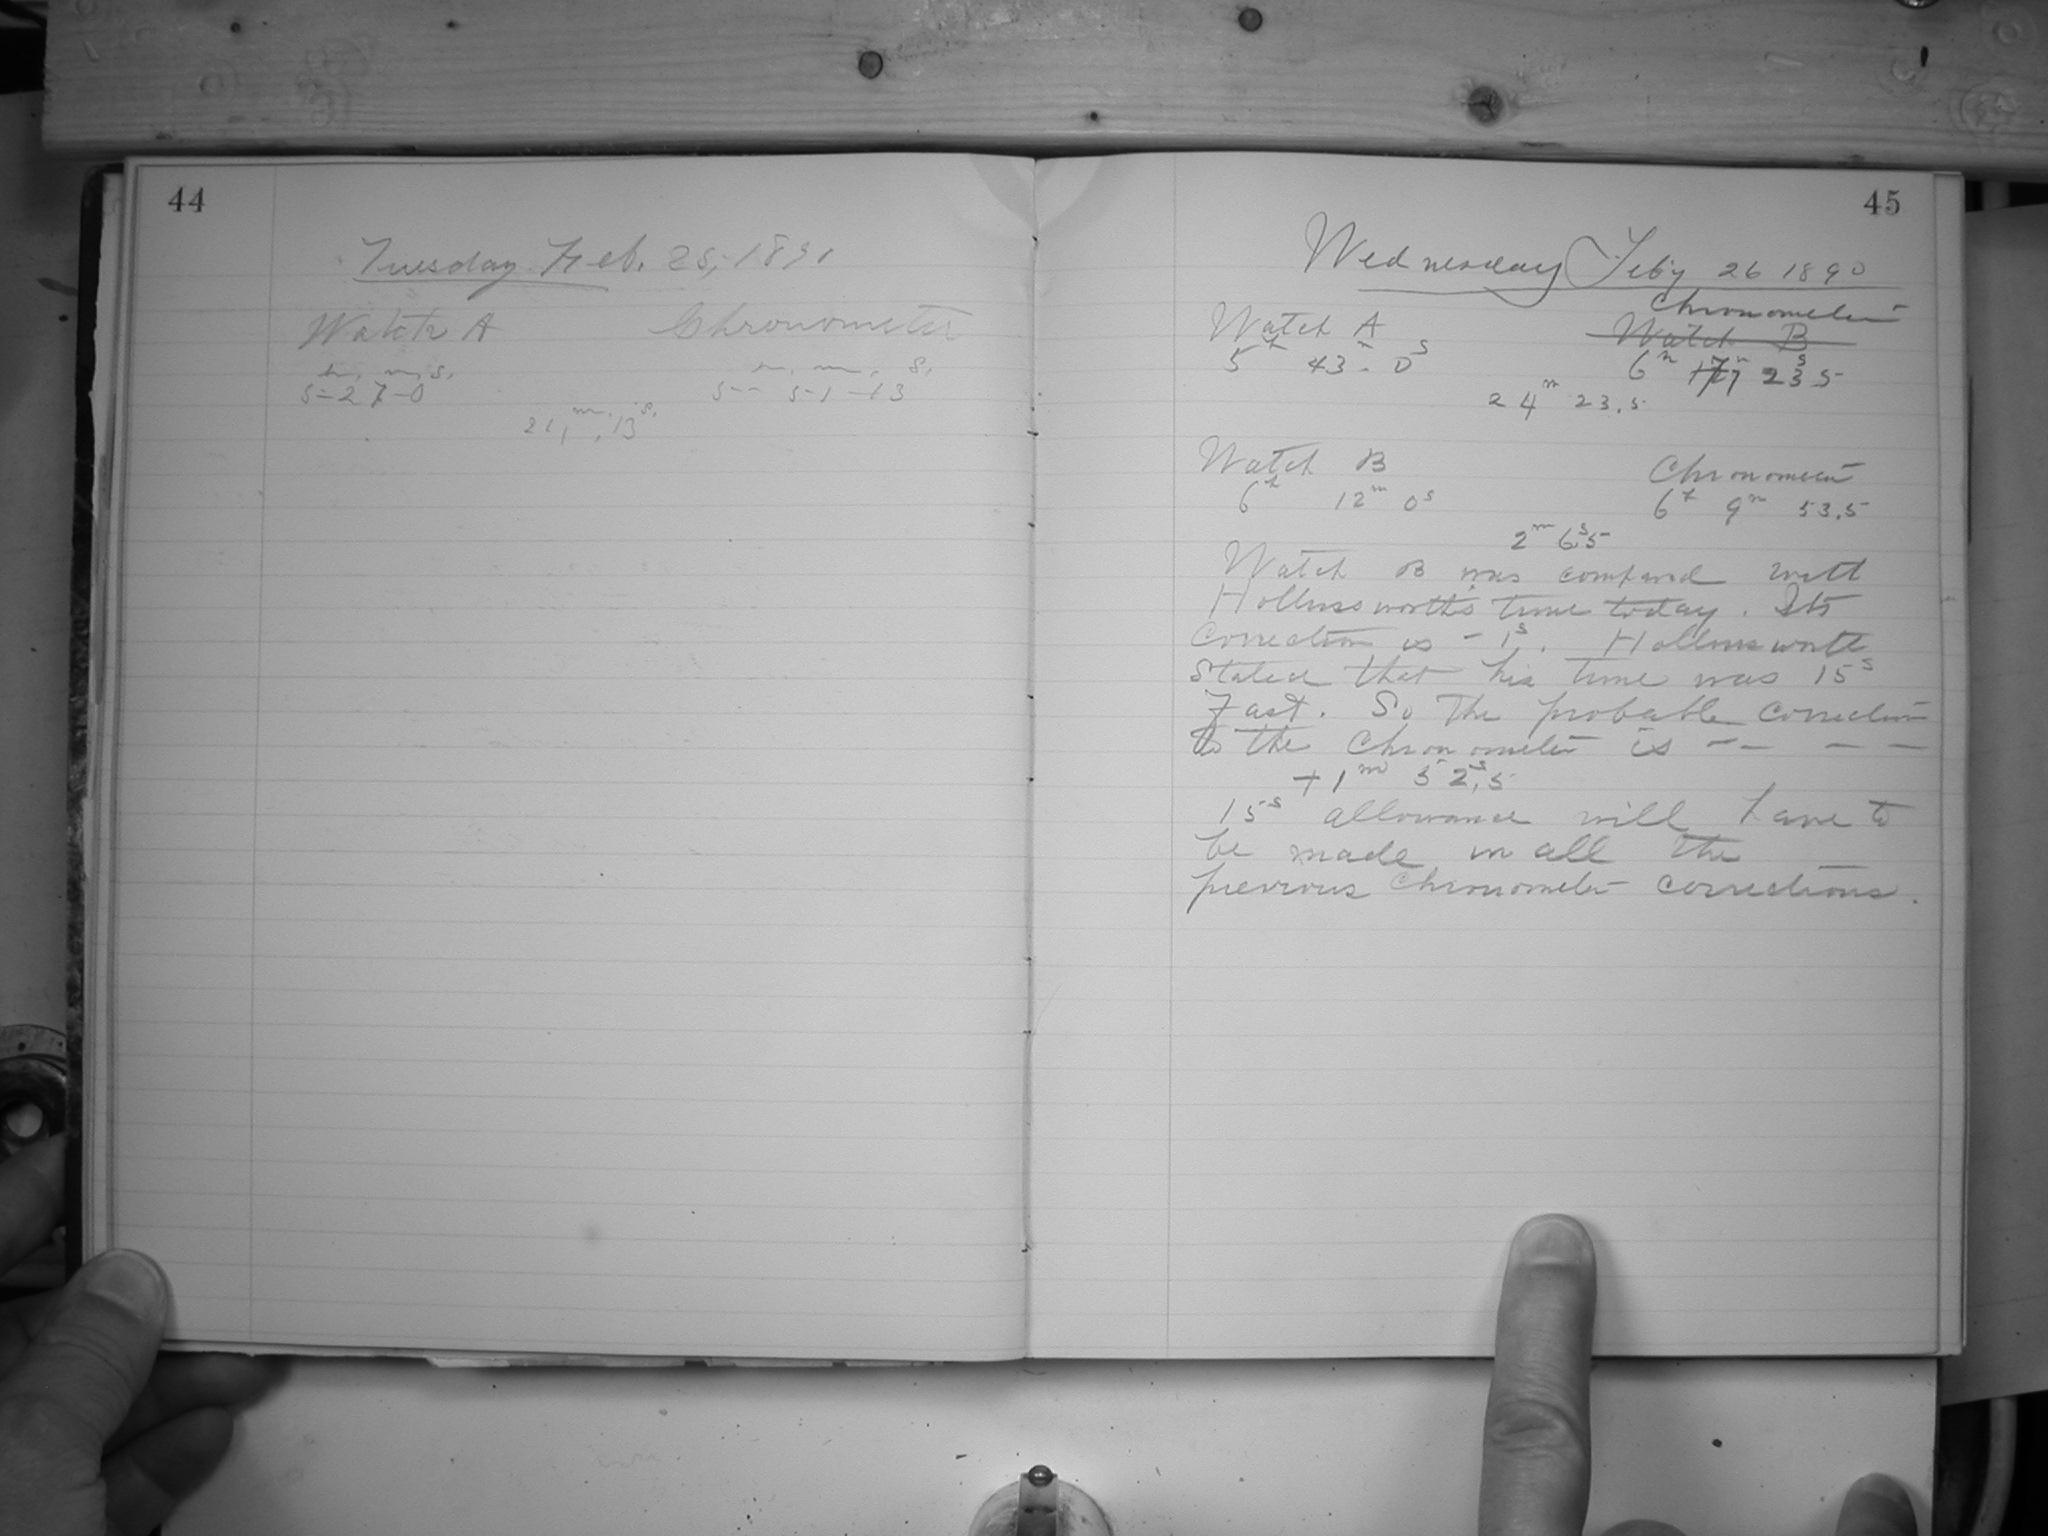 44
Tuesday Feb. 25, 1890
Watch A Chronometer
h. m. s. h. m. s.
5-27-0 5--51-13
24m. 13s.
45
Wednesday Feb'y 26 1890
Chronometer
Watch A Watch B
5h 43m 0s 6h 7m 23s5
24m 23.5
Watch B Chronometer
6h 12m 0s 6h 9m 53.5
2m 6s.5
Watch B was compared with
Hollinsworth's time today. Its
Correction is -1s. Hollinsworth
Stated that his time was 15s
Fast. So the probable correction
to the Chronometer is -- - -
+1m 52s.5
15s allowance will have to
be made in all the
previous Chronometer corrections.